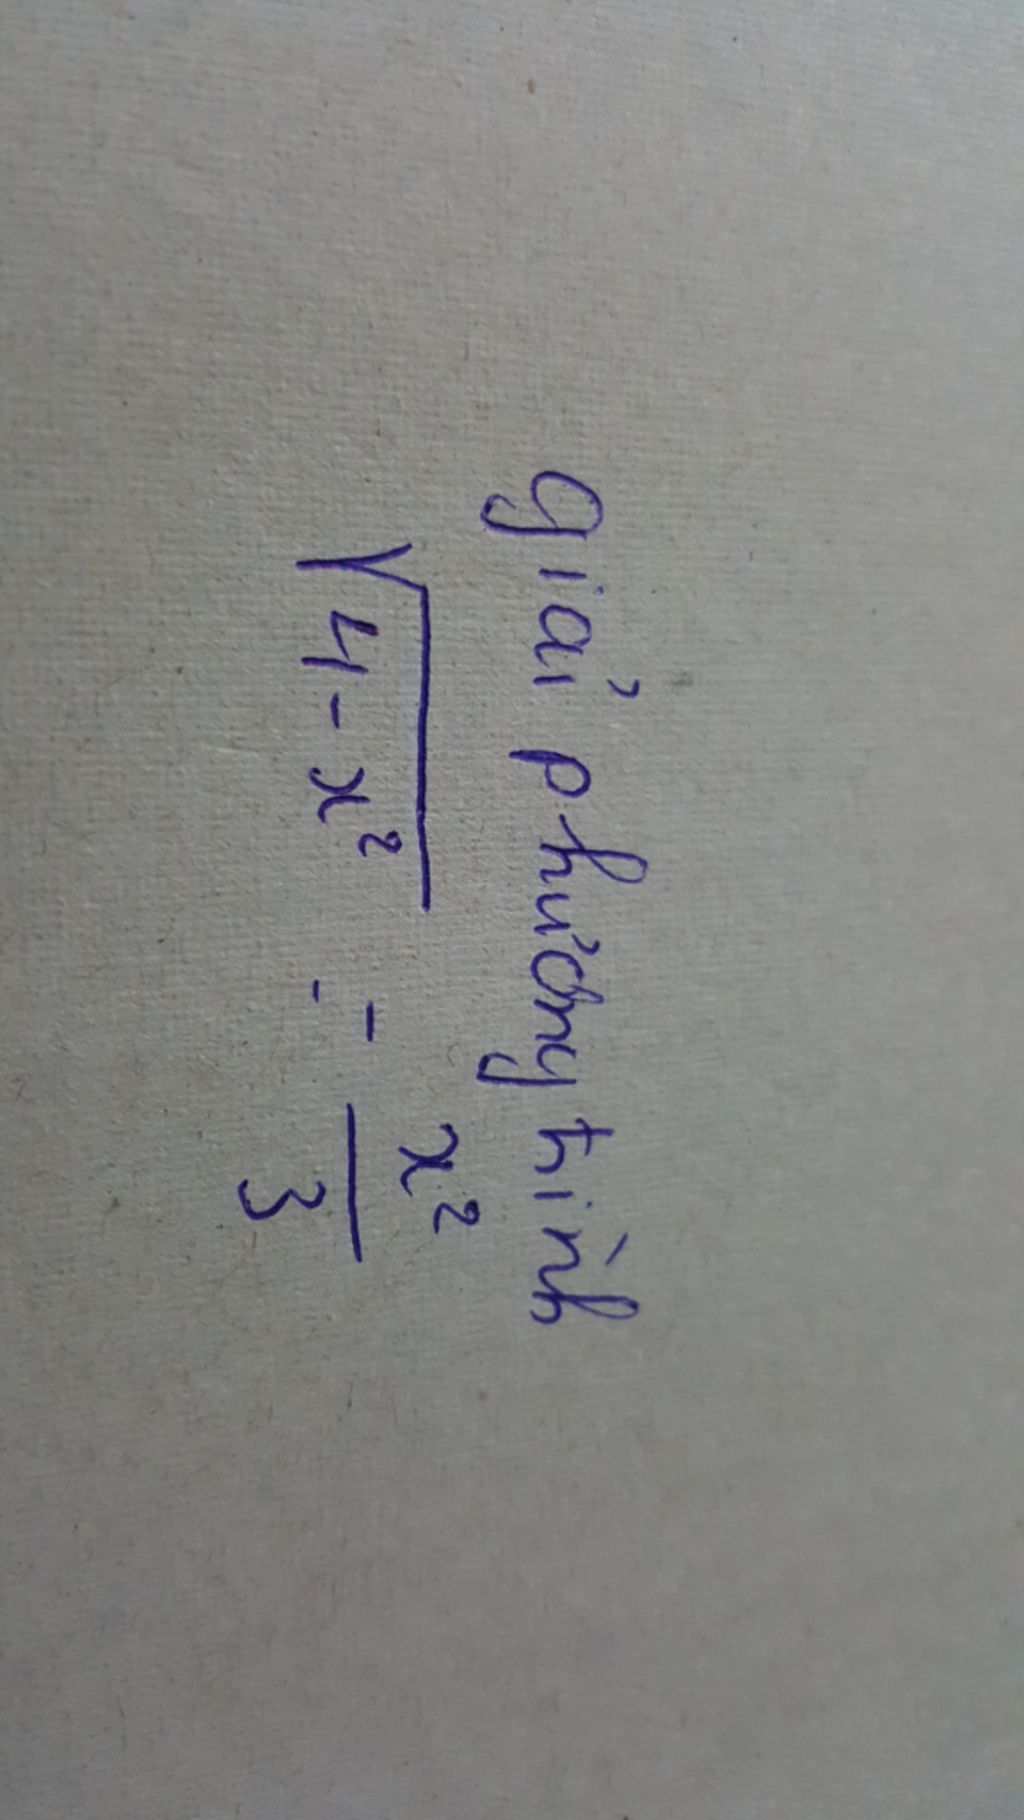 giải phương trình
√(4 - x²) = x²/3